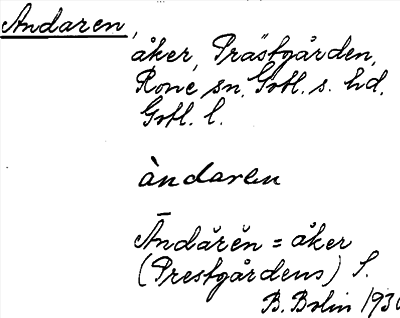 Andaren,
åker, Prästgården,
Rone sn. Gotl. s. hd.
Gotl. l.
àndaren
Āndărĕn = åker
(Prestgårdens) S.
B. Bolin